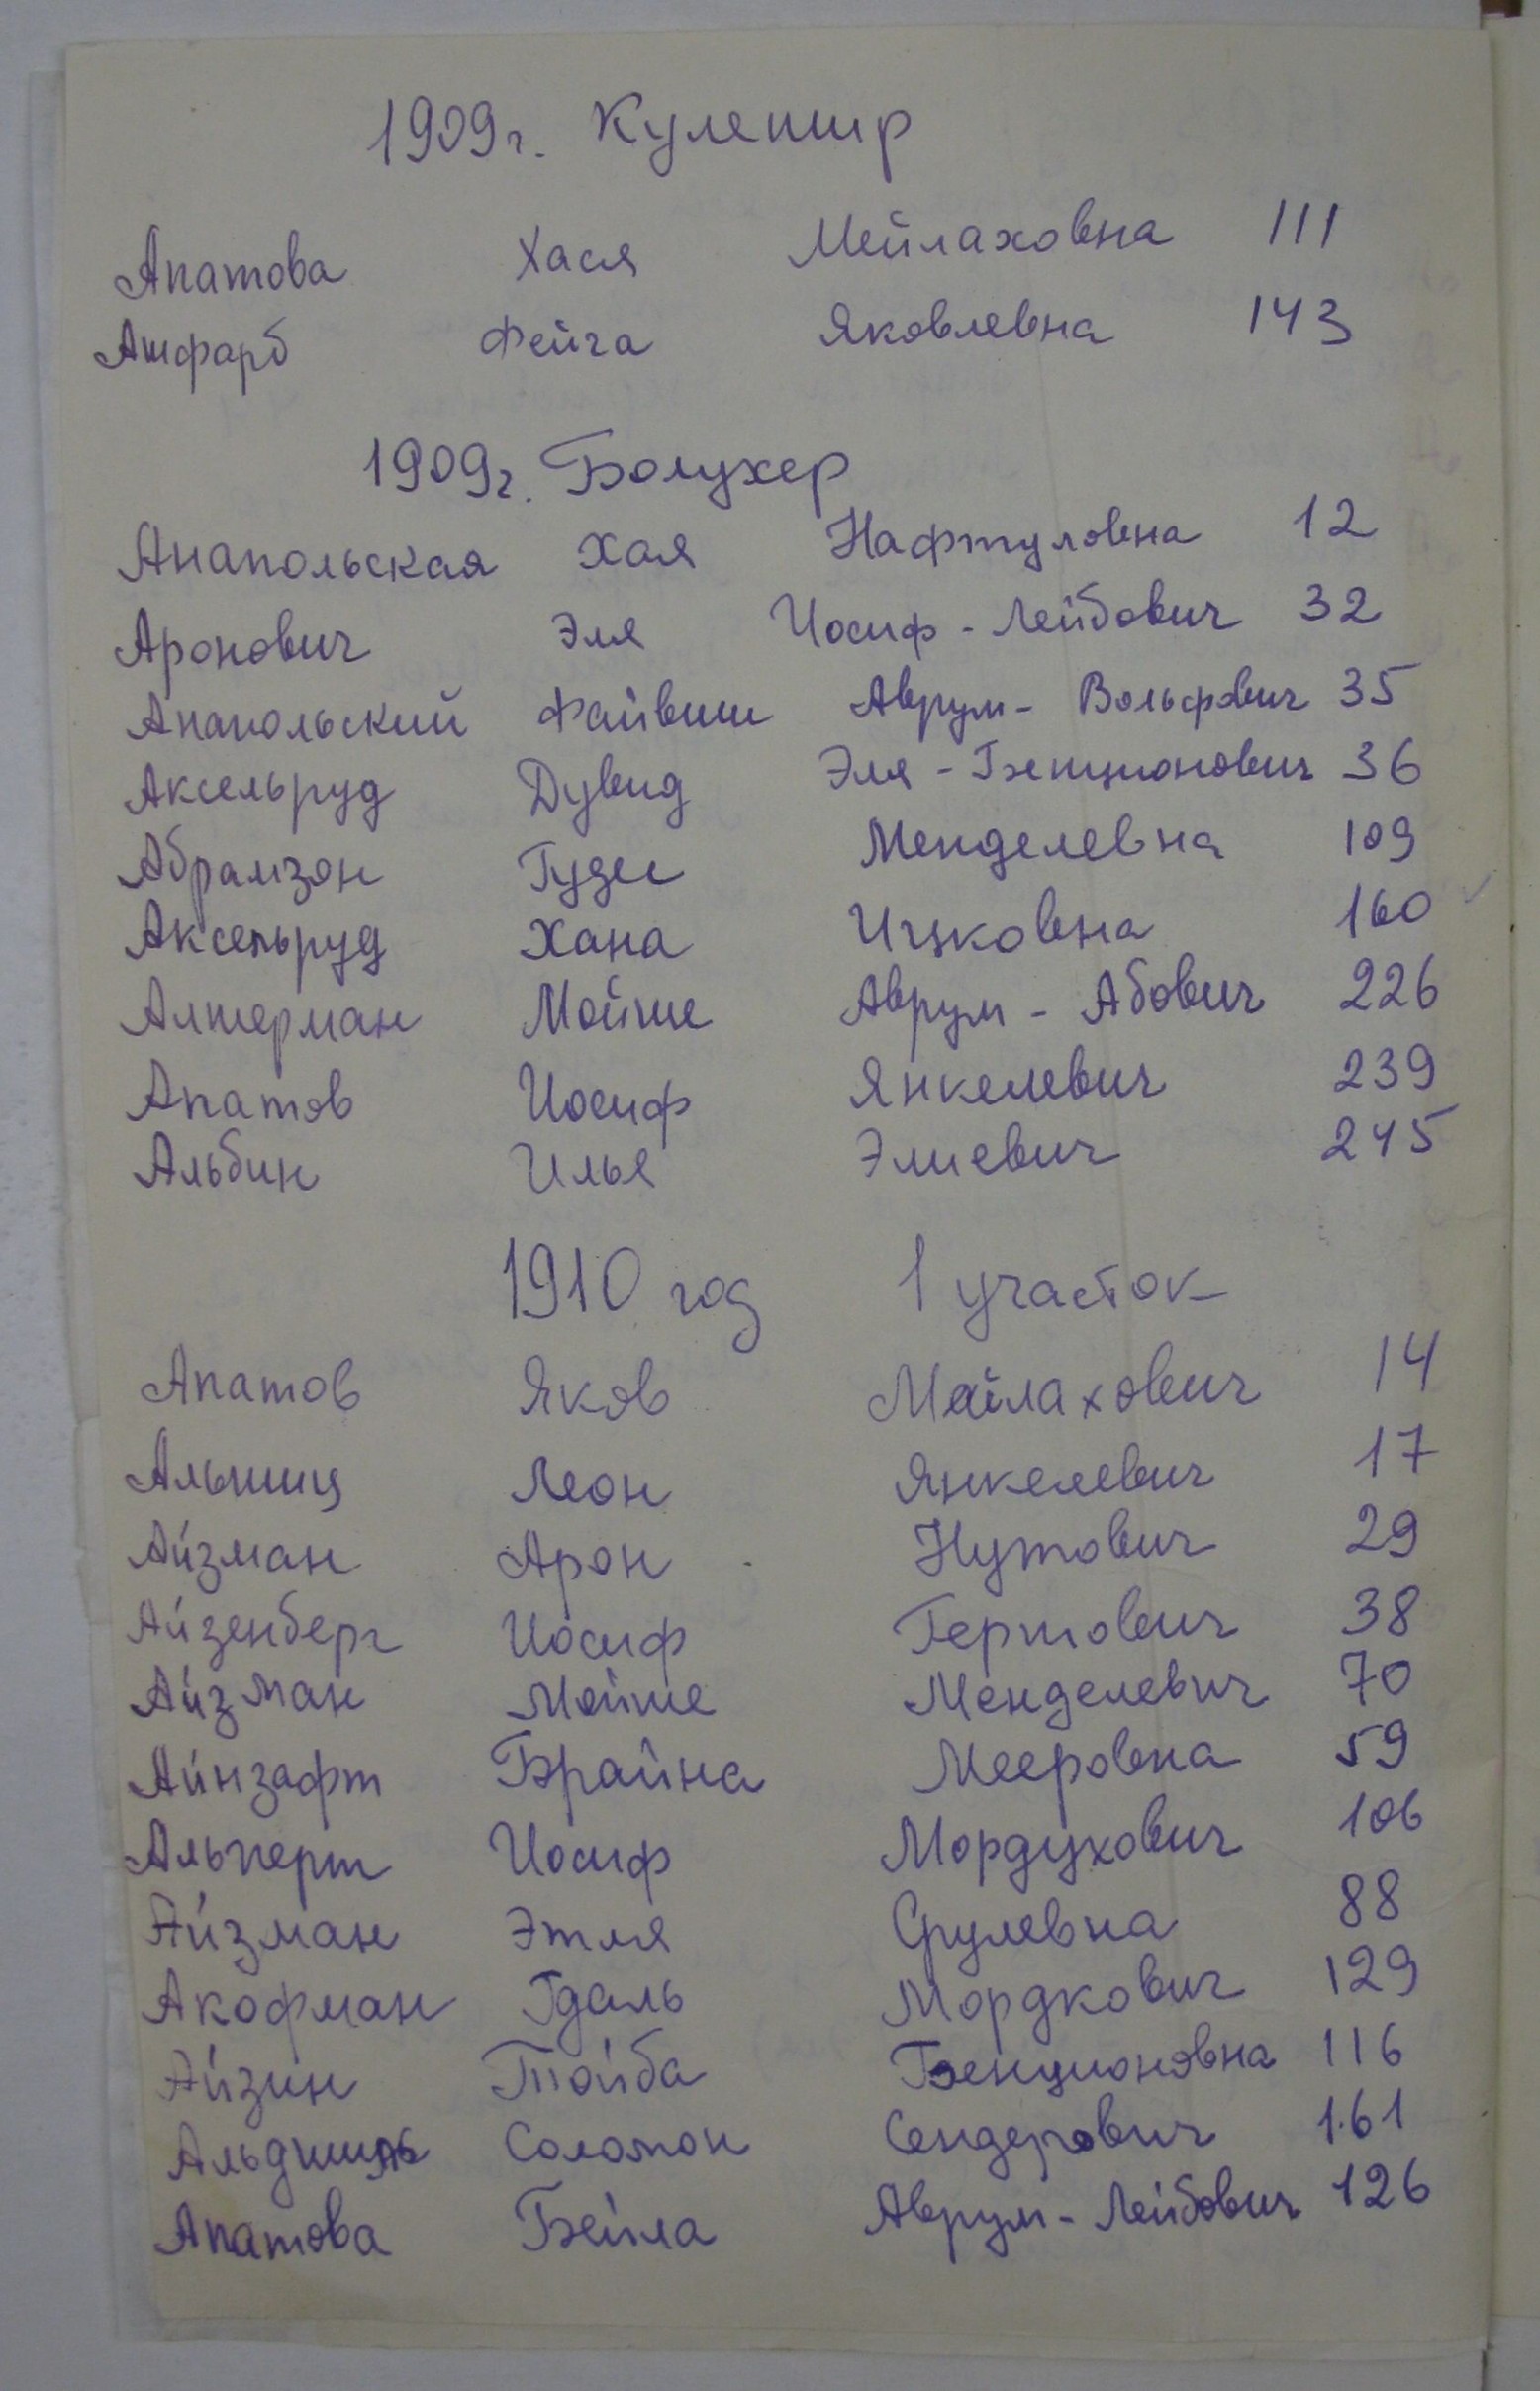 1909г. Кулепшр
Апатова Хася Мейлаховна 111
Ашфарб Фейга Яковлевна 143
1909г. Болухер
Анапольская Хая Нафтуловна 12
Аронович Эля Иосиф-Лейбович 32
Анапольский Файвиш Аврум-Вольфович 35
Аксельруд Дувид Эля-Бенционович 36
Абрамзон Гудес Менделевна 109
Аксельруд Хана Ицковна 160
Алтерман Мойше Аврум-Абович 226
Апатов Иосиф Янкелевич 239
Альбин Илья Элиевич 245
1910 год 1 участок
Апатов Яков Мейлахович 14
Альшиц Леон Янкелевич 17
Айзман Арон Нутович 29
Айзенберг Иосиф Гертович 38
Айзман Мойше Менделевич 70
Айнзафт Брайна Мееровна 59
Альперт Иосиф Мордухович 106
Айзман Этля Срулевна 88
Акофман Гдаль Мордкович 129
Айзин Тойба Бенционовна 116
Соломон Сендерович 161
Апатова Бейла Аврум-Лейбович 126